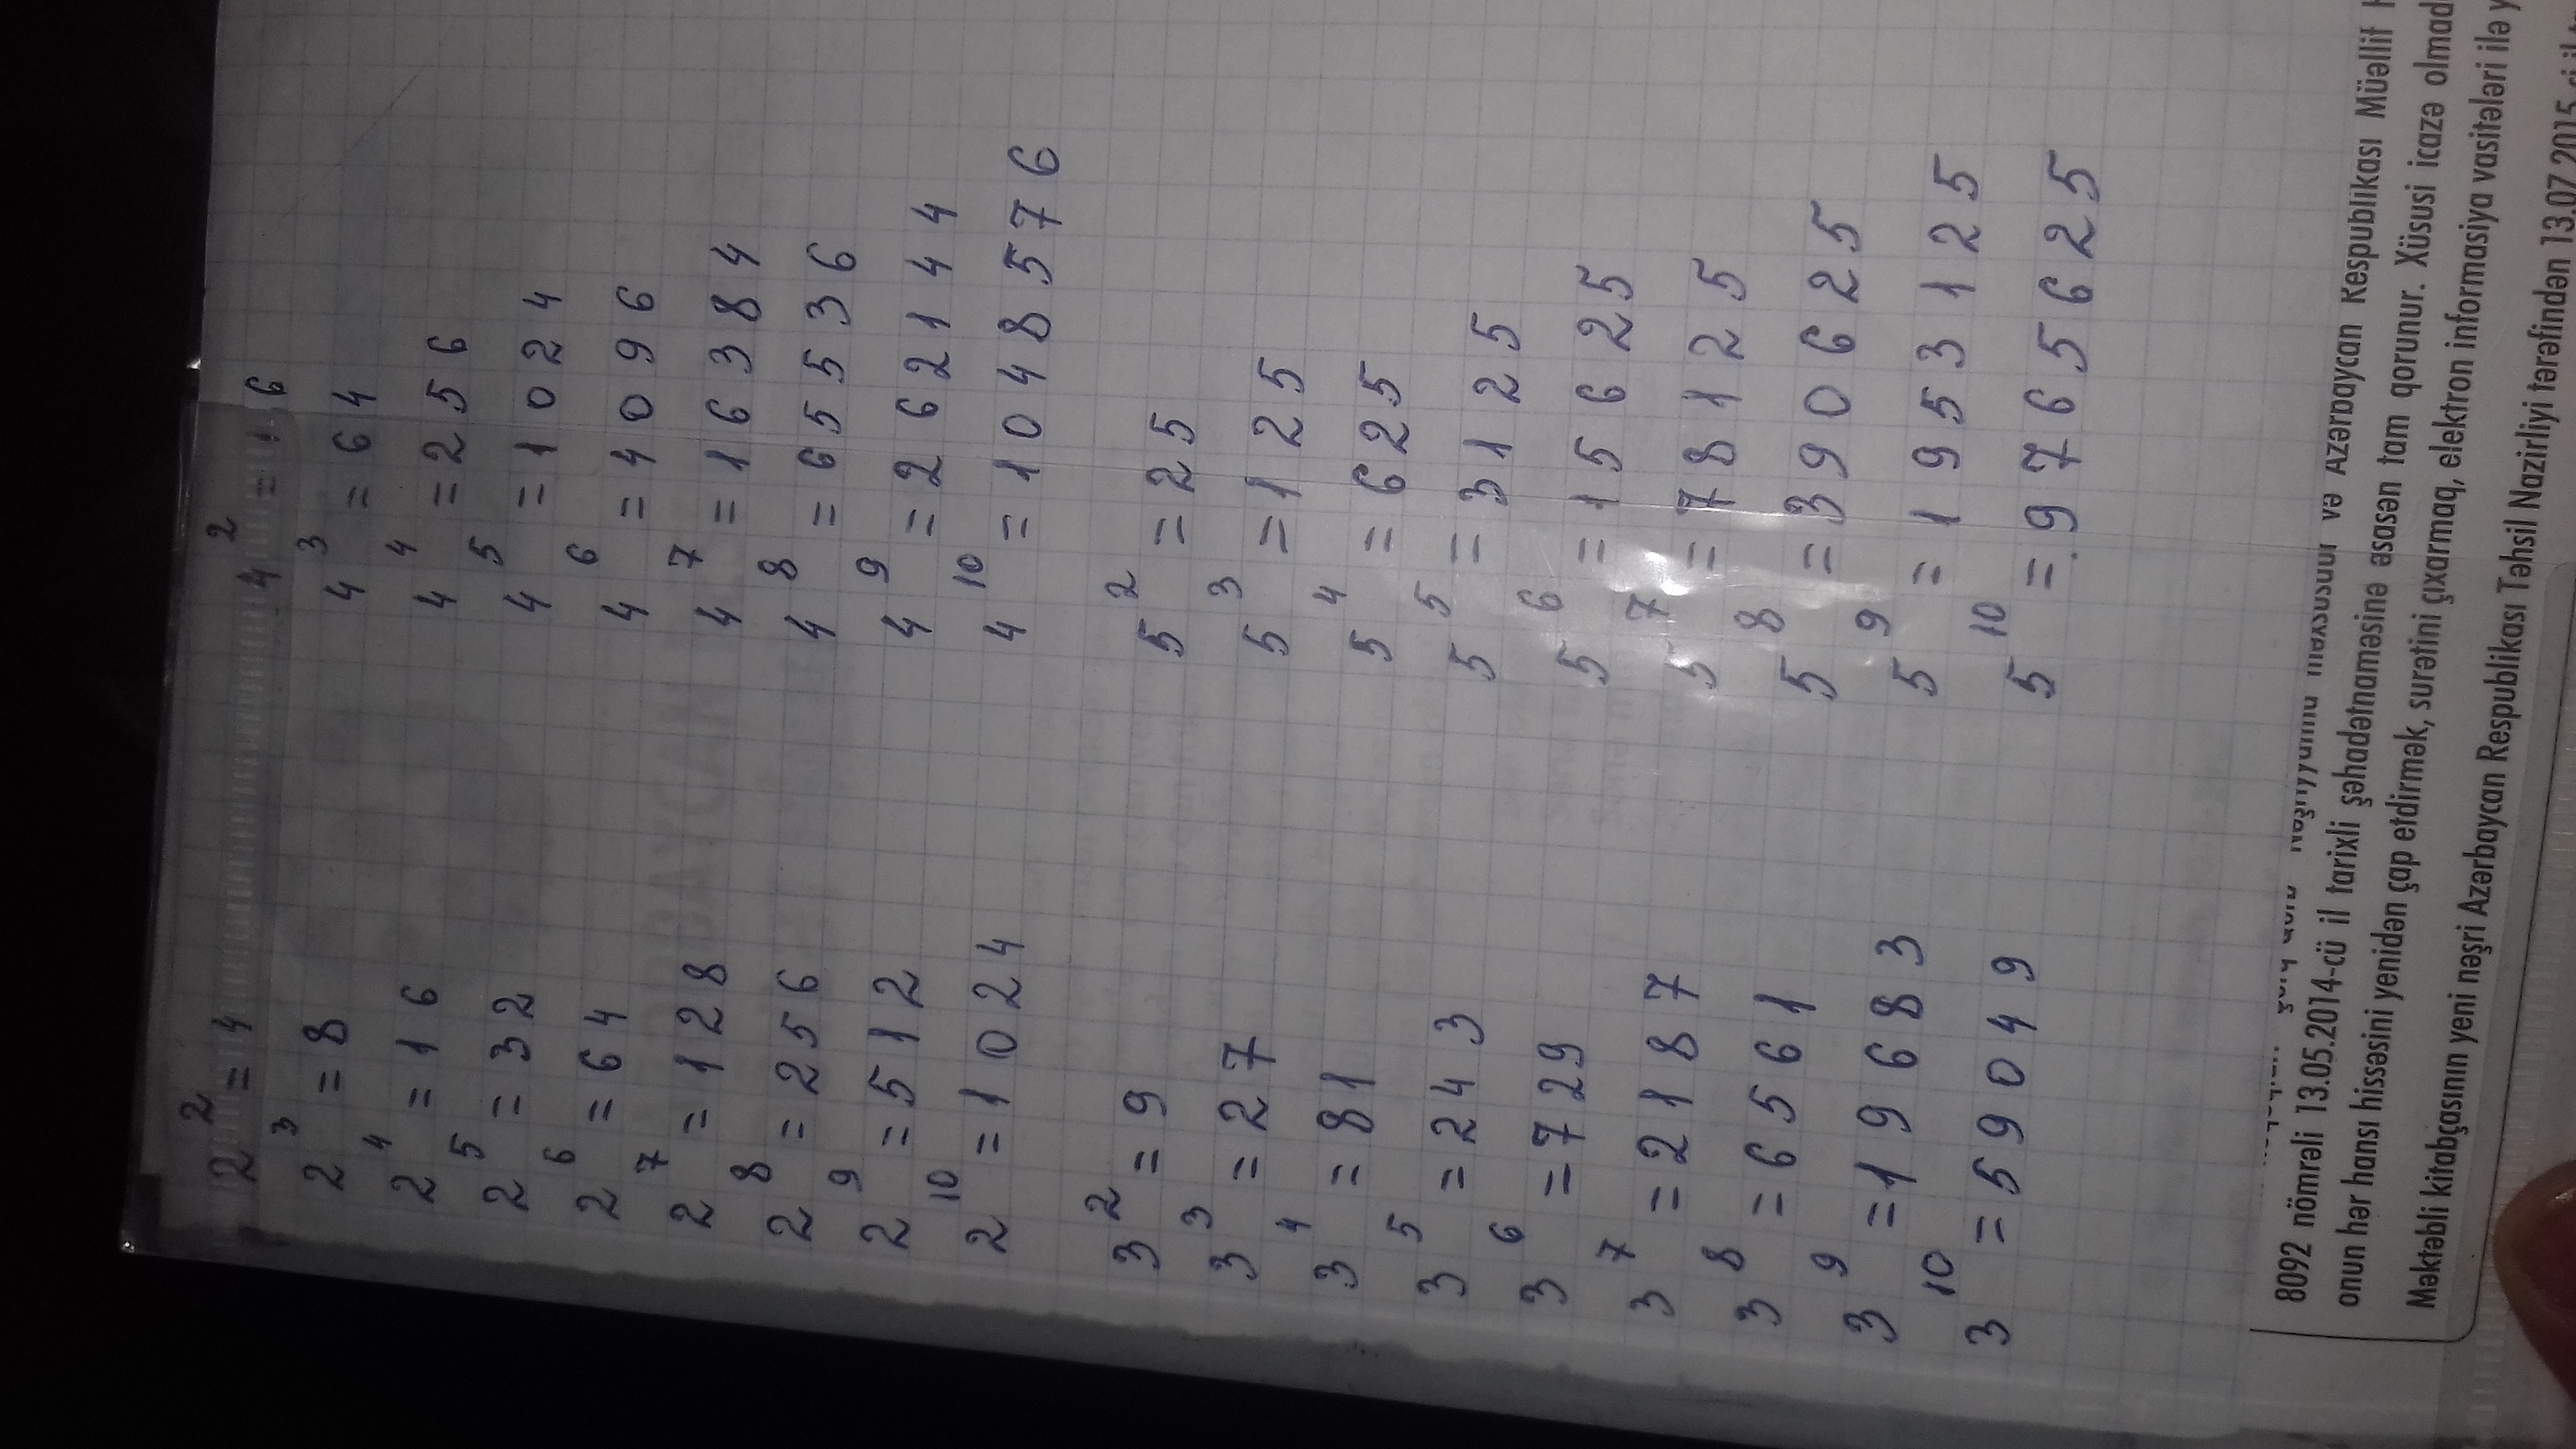 2² = 4
2³ = 8
2⁴ = 16
2⁵ = 32
2⁶ = 64
2⁷ = 128
2⁸ = 256
2⁹ = 512
2¹⁰ = 1024
3² = 9
3³ = 27
3⁴ = 81
3⁵ = 243
3⁶ = 729
3⁷ = 2187
3⁸ = 6561
3⁹ = 19683
3¹⁰ = 59049
4² = 16
4³ = 64
4⁴ = 256
4⁵ = 1024
4⁶ = 4096
4⁷ = 16384
4⁸ = 65536
4⁹ = 262144
4¹⁰ = 1048576
5² = 25
5³ = 125
5⁴ = 625
5⁵ = 3125
5⁶ = 15625
5⁷ = 78125
5⁸ = 390625
5⁹ = 1953125
5¹⁰ = 9765625
və Azərbaycan Respublikası Müəllif
8092 nömrəli 13.05.2014-cü il tarixli şəhadətnaməsinə əsasən tam qorunur. Xüsusi icazə
onun hər hansı hissəsini yenidən çap etdirmək, surətini çıxarmaq, elektron informasiya vasitələri ilə
Məktəbli kitabçasının yeni nəşri Azərbaycan Respublikası Təhsil Nazirliyi tərəfindən 13.07.2015